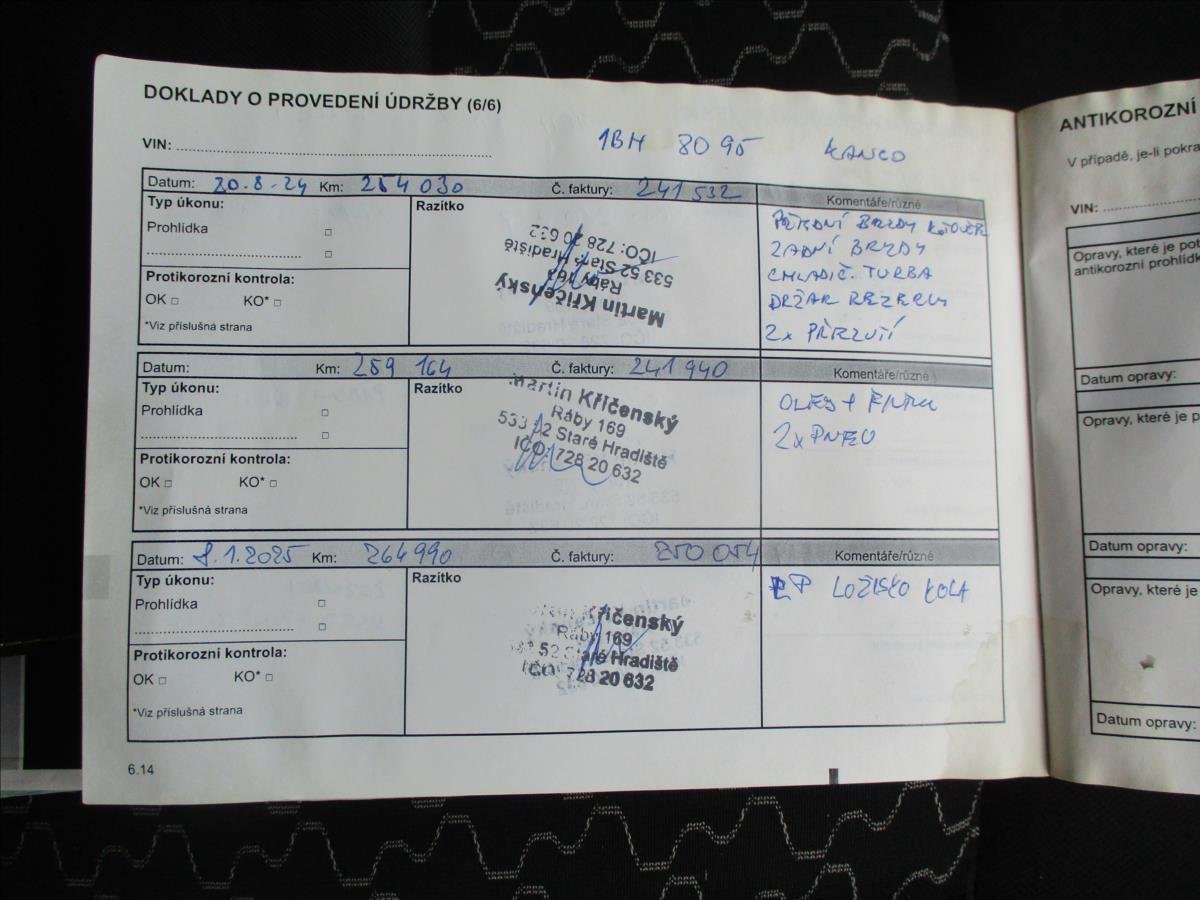 DOKLADY O PROVEDENÍ ÚDRŽBY (6/6)
VIN: 1BH 8095 KANGO
Datum: 20.8-24 Km: 254 030 Č. faktury: 241 532 Komentáře/různé
Typ úkonu:
Prohlídka
Protikorozní kontrola:
OK KO*
*Viz příslušná strana
Razítko
Martin Křičenský
Ráby 169
533 52 Staré Hradiště
IČO: 728 20 632
PŘEDNÍ BRZDY
ZADNÍ BRZDY
CHLADIČ. TURBA
DRŽÁK REZERVY
2x PŘEZUTÍ
Datum: Km: 259 164 Č. faktury: 241 940 Komentáře/různé
Typ úkonu:
Prohlídka
Protikorozní kontrola:
OK KO*
*Viz příslušná strana
Razítko
Martin Křičenský
Ráby 169
533 52 Staré Hradiště
IČO: 728 20 632
OLEJ + FILTRY
2x PNEU
Datum: 8.1.2025 Km: 264990 Č. faktury: 250 054 Komentáře/různé
Typ úkonu:
Prohlídka
Protikorozní kontrola:
OK KO*
*Viz příslušná strana
Razítko
Křičenský
Ráby 169
52 Staré Hradiště
IČO: 728 20 632
LOŽISKO KOLA
6.14
ANTIKOROZNÍ
V případě, je-li pokra
VIN:
Opravy, které je pot
antikorozní prohlídk
Datum opravy:
Opravy, které je p
Datum opravy:
Opravy, které je
Datum opravy: